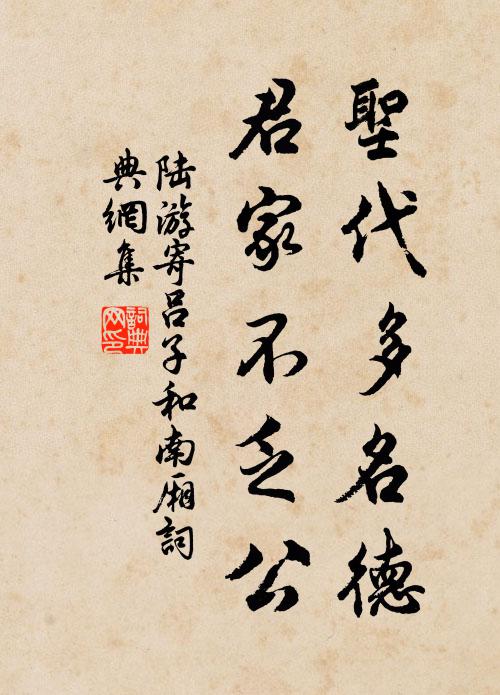 聖代多名德
君家不乏公
陸游寄呂子和南廂詞
典網集
詞典
网印